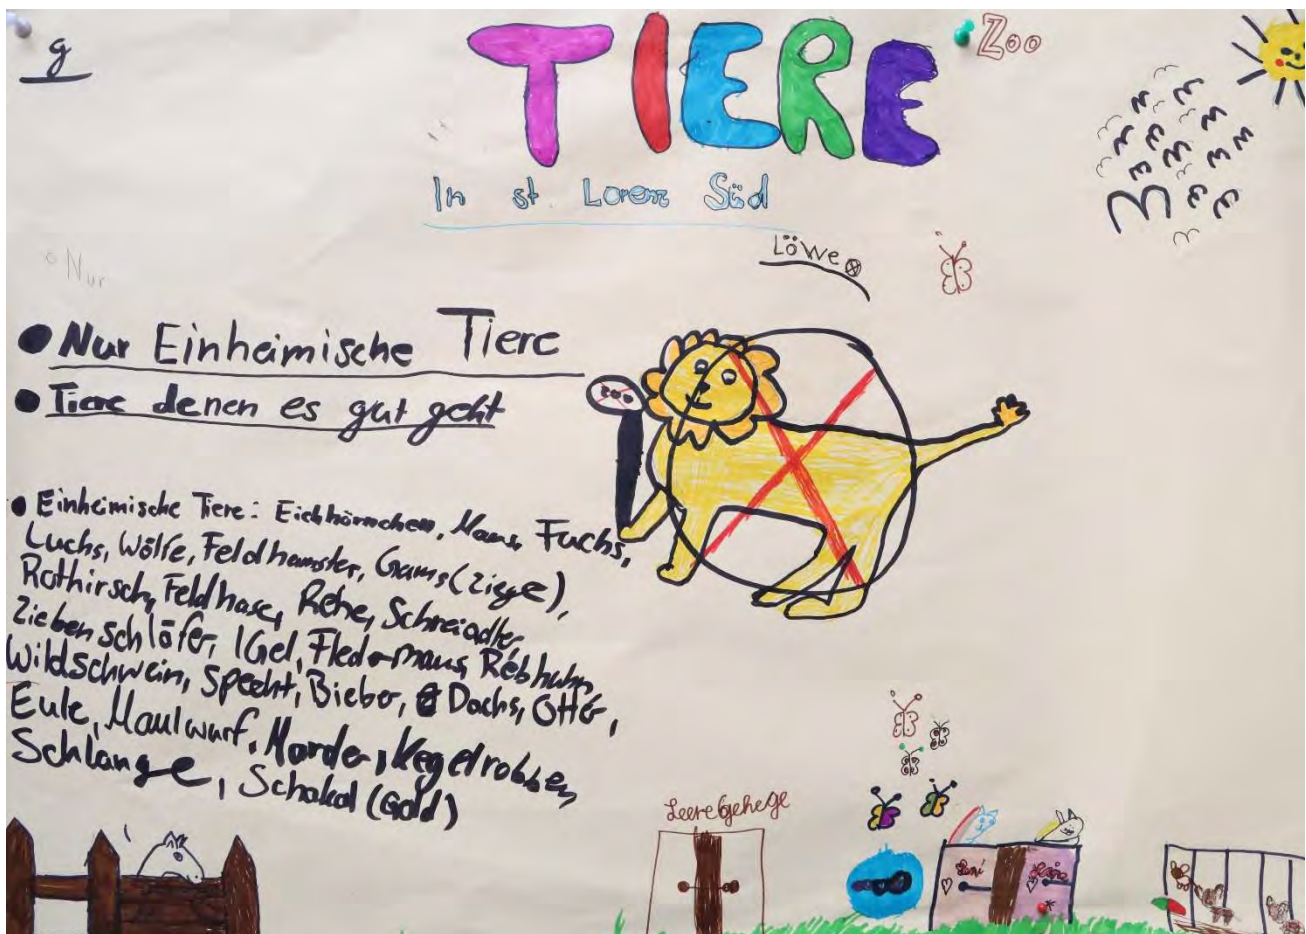 g
TIERE
Zoo
In st. Lorenz Süd
Löwe
Nur
• Nur Einheimische Tiere
• Tiere denen es gut geht
zoo
• Einheimische Tiere: Eichhörnchen, Maus, Fuchs,
Luchs, Wölfe, Feldhamster, Gams (Ziege),
Rothirsch, Feldhase, Rehe, Schreiadler,
Ziebenschläfer, IGel, Fledermaus, Rebhuhn,
Wildschwein, Specht, Bieber, Dachs, Otter,
Eule, Maulwurf, Marder, Kegelrobben,
Schlange, Schakal (Gold)
Leere Gehege